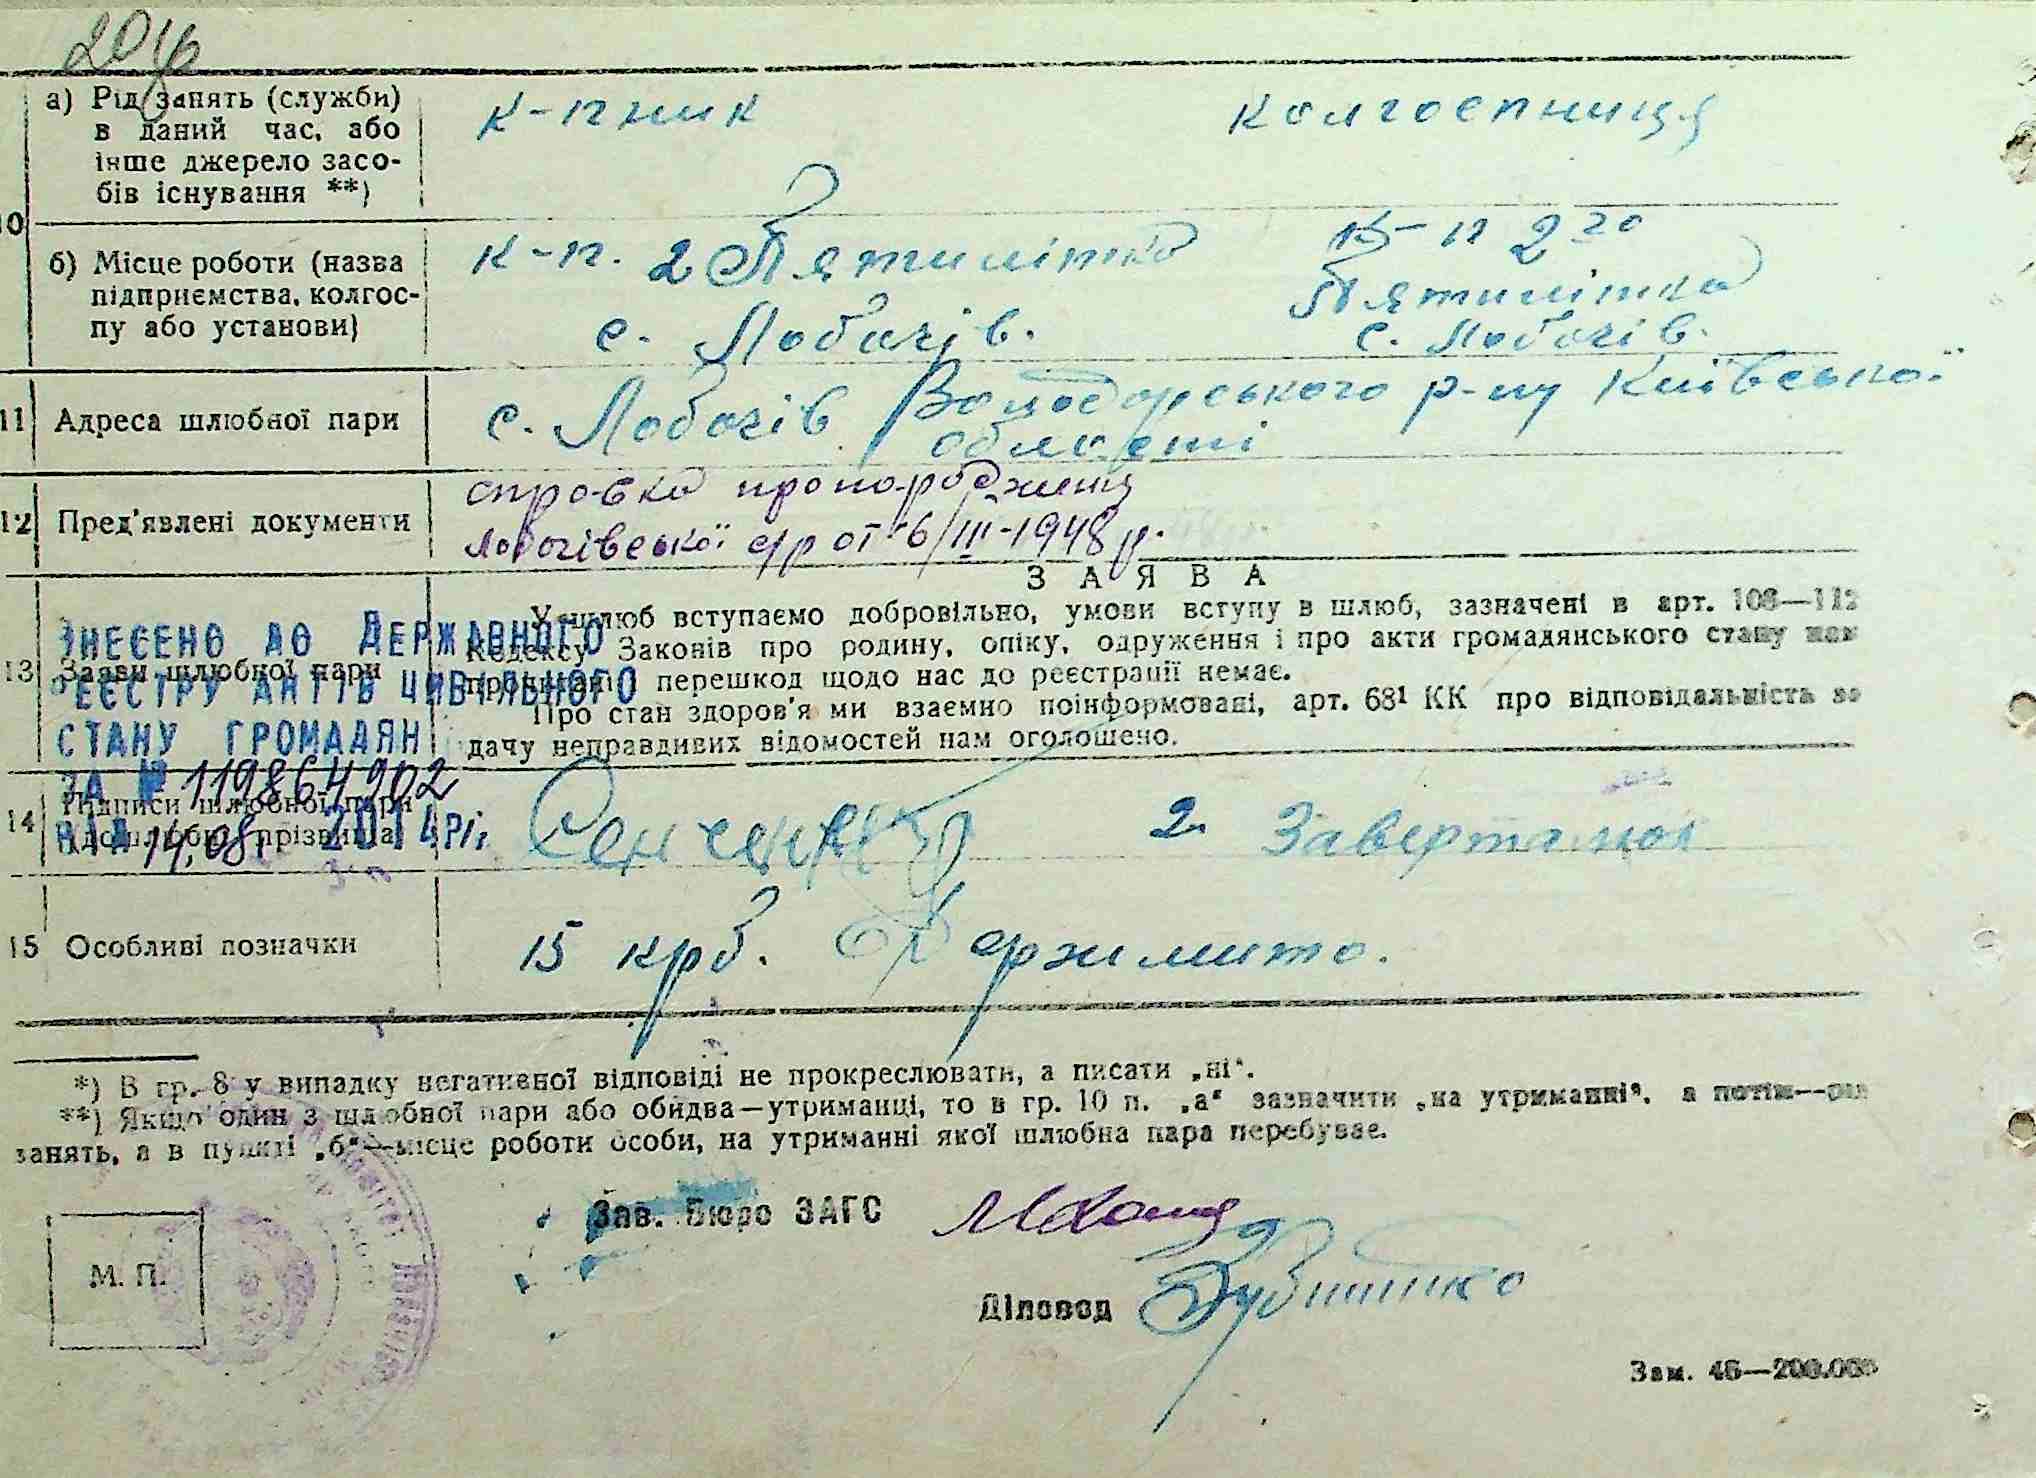 20
10
а) Рід занять (служби)
в даний час, або
інше джерело засо-
бів існування **)
к-пник
колгоспниця
б) Місце роботи (назва
підприємства, колгос-
пу або установи)
к-п. 2 Пятилітка
с. Лобачів.
к-п 2 га
Пятилітка
с. Лобачів.
11 Адреса шлюбної пари
с. Лобачів Володарського р-ну Київської
області
12 Пред'явлені документи
справка про народження
Лобачівської с/р от 6/III-1948 р.
13 Заяви шлюбної пари
ЗАЯВА
У шлюб вступаємо добровільно, умови вступу в шлюб, зазначені в арт. 108—112
Кодексу Законів про родину, опіку, одруження і про акти громадянського стану нам
перешкод щодо нас до реєстрації немає.
Про стан здоров'я ми взаємно поінформовані, арт. 68¹ КК про відповідальність за
дачу неправдивих відомостей нам оголошено.
ЗНЕСЕНО ДО ДЕРЖАВНОГО
РЕЄСТРУ АКТІВ ЦИВІЛЬНОГО
СТАНУ ГРОМАДЯН
ЗА № 119864902
ВІД 14.08. 2014 р.
14 Підписи шлюбної пари
(дошлюбні прізвища
Сенченко
2. Заверталюк
15 Особливі позначки
15 крб. держмито.
*) В гр. 8 у випадку негативної відповіді не прокреслювати, а писати „ні“.
**) Якщо один з шлюбної пари або обидва—утриманці, то в гр. 10 п. „а“ зазначити „на утриманні“, а потім—рід
занять, а в пункті „б“—місце роботи особи, на утриманні якої шлюбна пара перебуває.
М. П.
Зав. Бюро ЗАГС
Діловод
Зам. 46—200.000